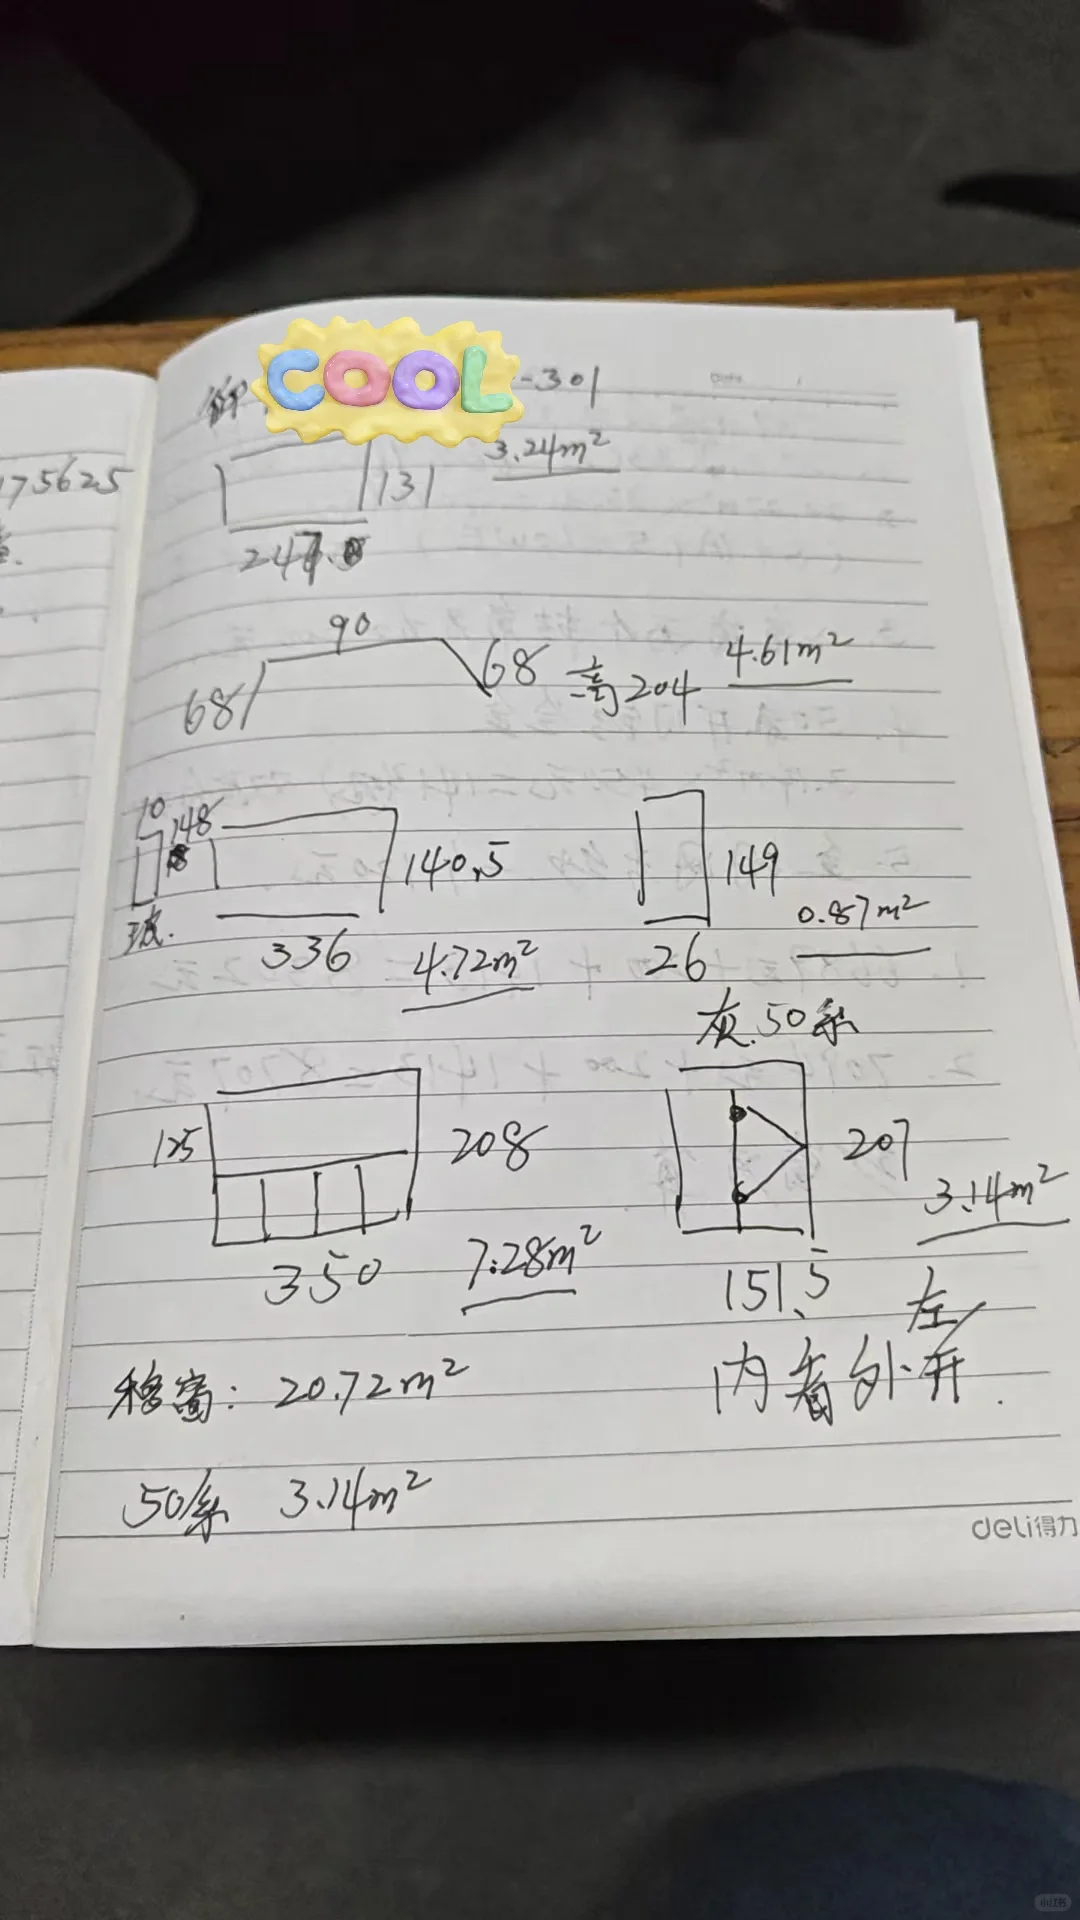 175625
COOL
-301
3.24m²
131
247.5
90
68
68
高204
4.61m²
10
148
140.5
玻.
336
4.72m²
149
26
0.87m²
灰.50系
125
208
350
7.28m²
207
3.14m²
151.5
左
内看外开.
移窗: 20.72m²
50系 3.14m²
deli得力